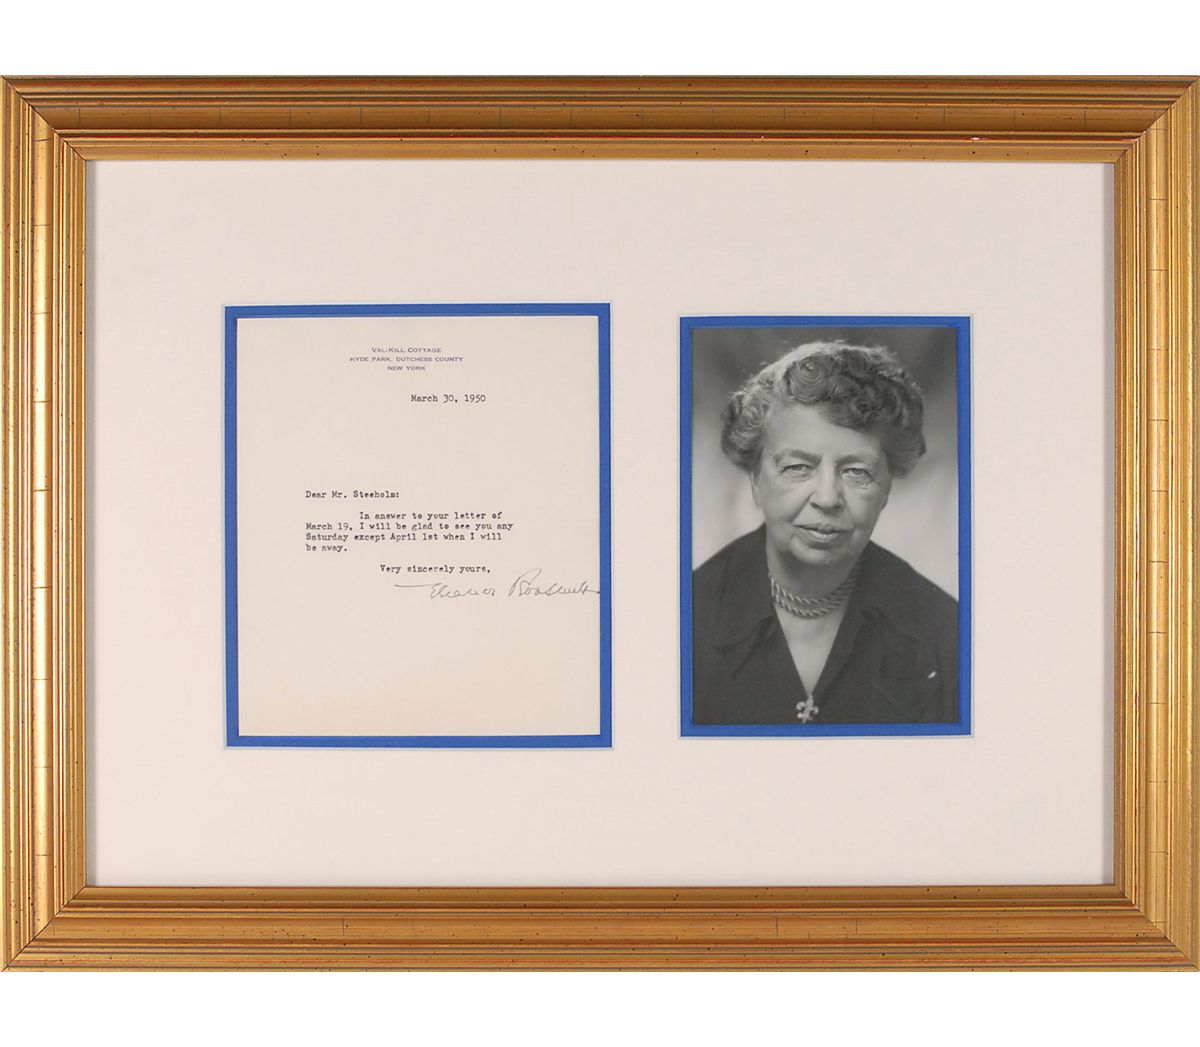 VAL-KILL COTTAGE
HYDE PARK, DUTCHESS COUNTY
NEW YORK
March 30, 1950
Dear Mr. Steeholm:
In answer to your letter of
March 19, I will be glad to see you any
Saturday except April 1st when I will
be away.
Very sincerely yours,
Eleanor Roosevelt